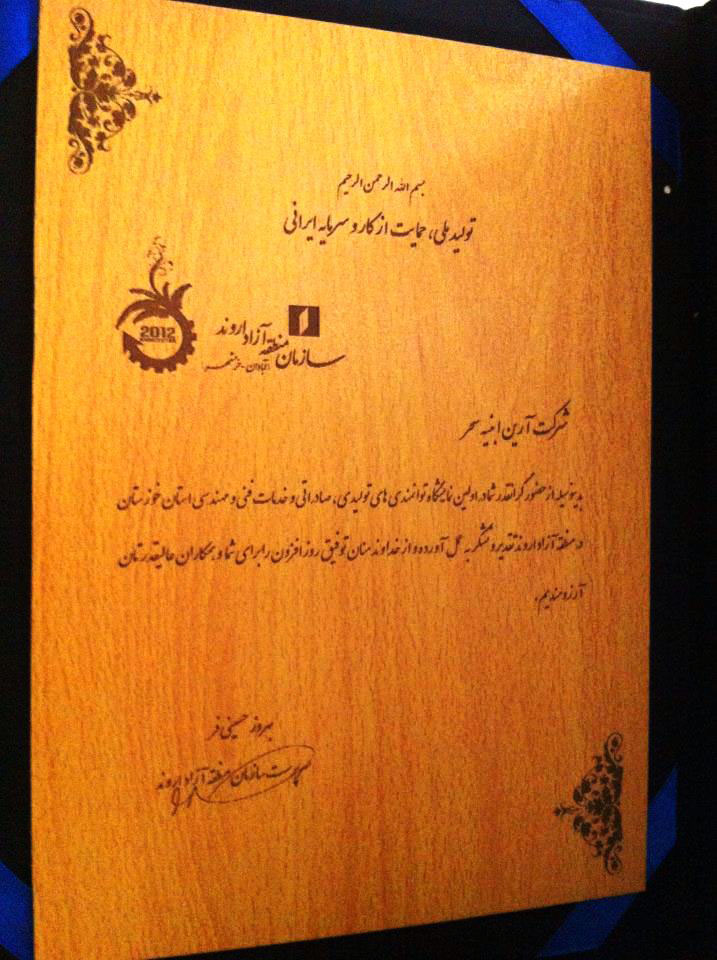 بسم الله الرحمن الرحیم
تولید ملی، حمایت از کار و سرمایه ایرانی
2012
سازمان منطقه آزاد اروند
آبادان - خرمشهر
شرکت آرین ابنیه سحر
بدینوسیله از حضور گرانقدر شما در اولین نمایشگاه توانمندی های تولیدی، صادراتی و خدمات فنی و مهندسی استان خوزستان
در منطقه آزاد اروند تقدیر و تشکر به عمل آورده و از خداوند منان توفیق روز افزون را برای شما و همکاران عالیقدرتان
آرزومندیم.
بهروز حسینی فر
سرپرست سازمان منطقه آزاد اروند